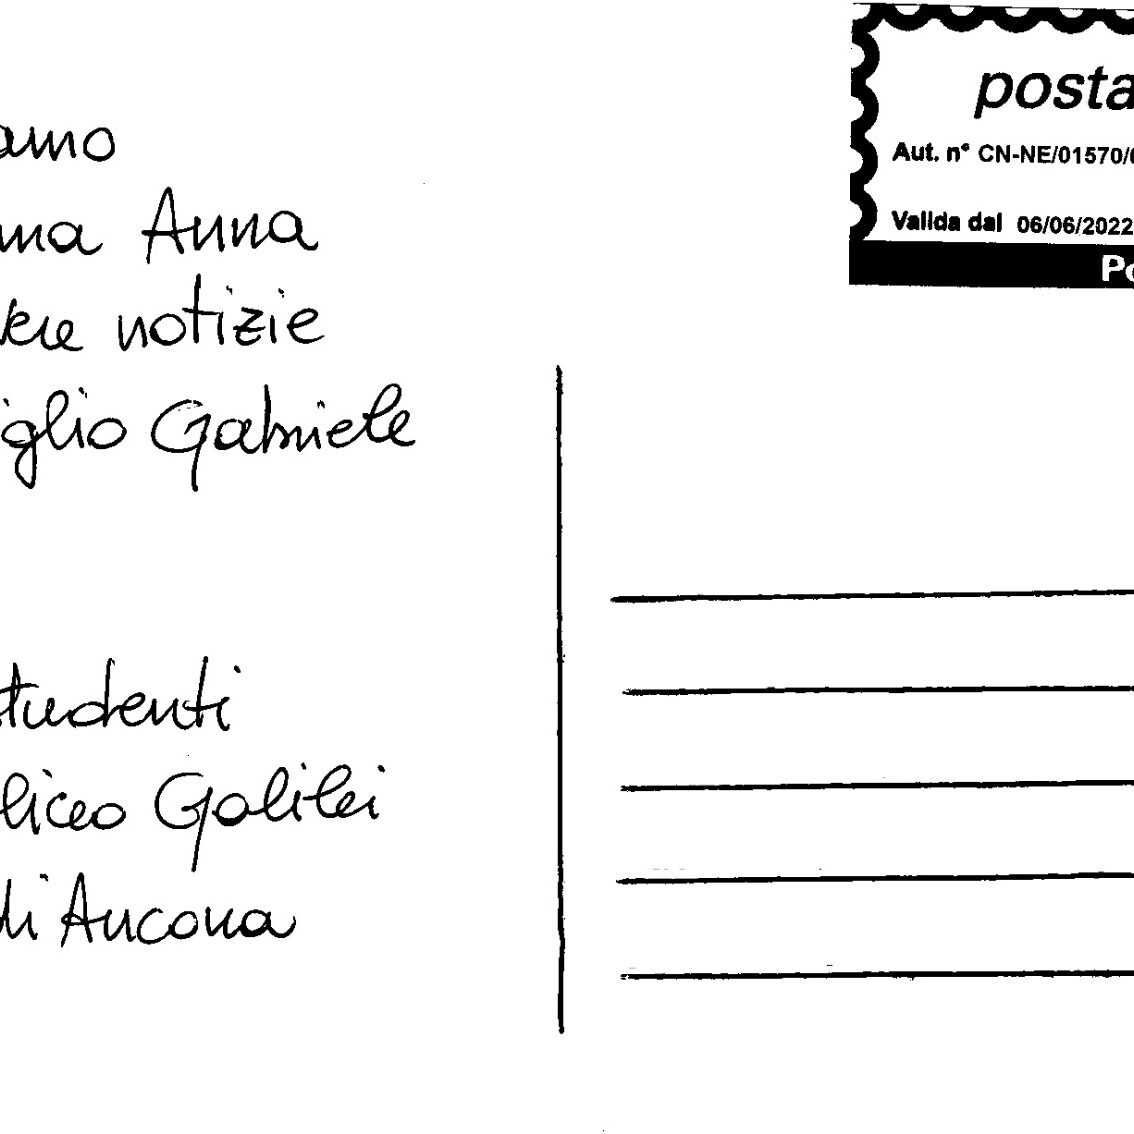 amo
ma Anna
vere notizie
iglio Gabriele
studenti
liceo Galilei
di Ancona
posta
Aut. n° CN-NE/01570/
Valida dal 06/06/2022
Po